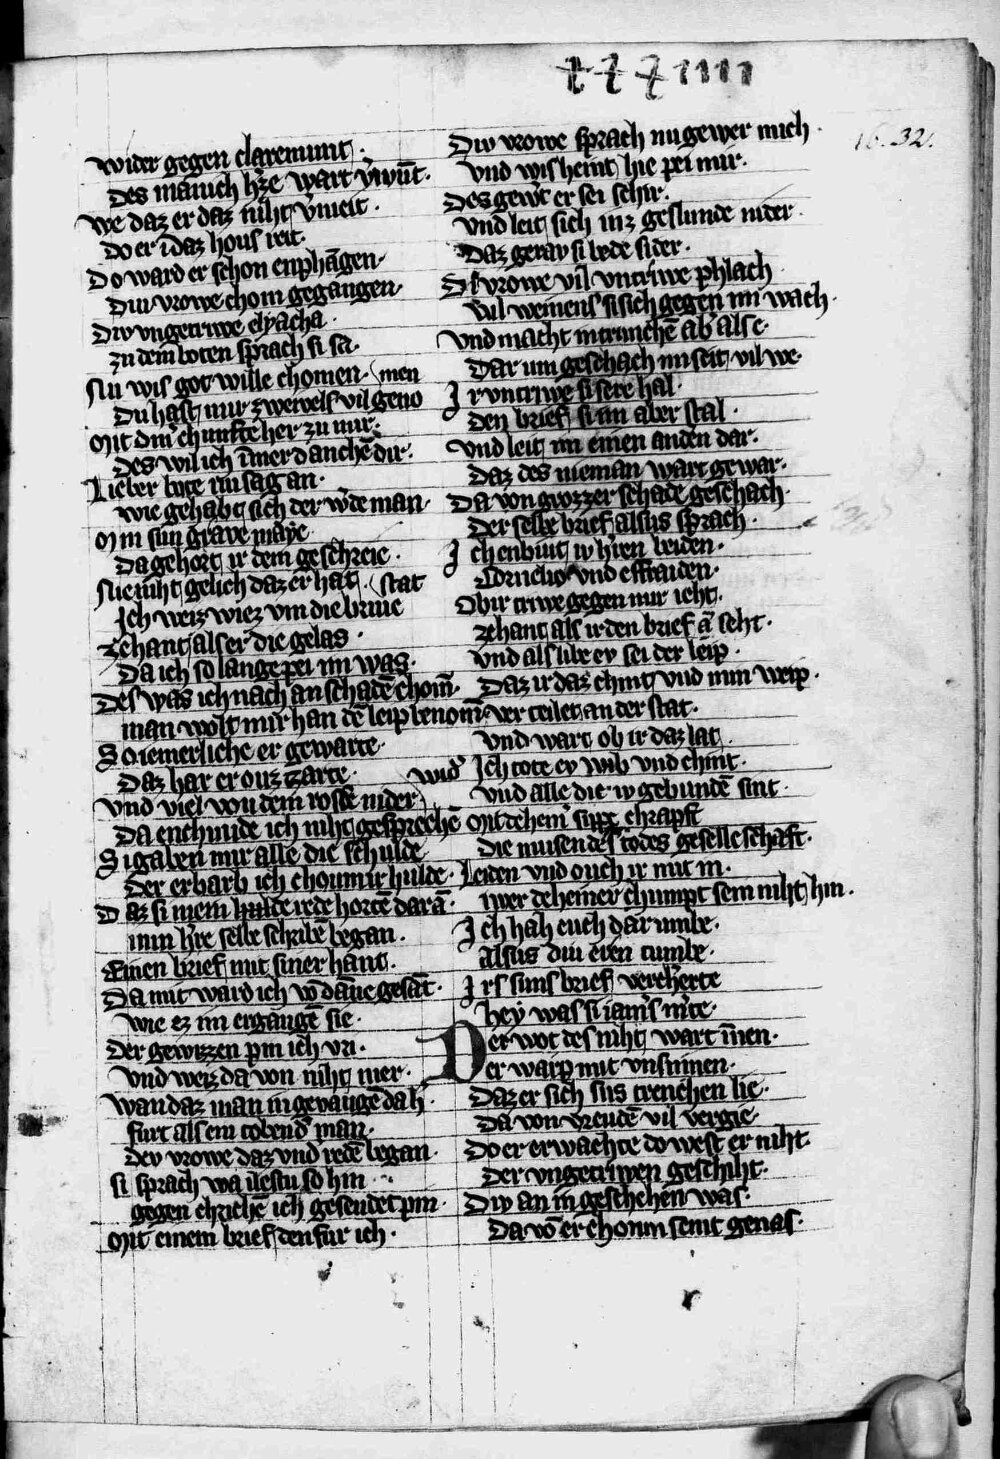 xxx iiii
16. 32.
wider gegen claremunt.
Des manich h'ze wart v'wūt.
we daz er daz niht v'meit.
Do er ī daz hous reit.
Do ward er schon enphāgen.
Diu vrowe chom gegangen.
Div vngetriwe elyacha.
zu dem boten sprach si sa.
Nu wis got wille chomen. (men
Du hast mir zweiuels vil geno
Mit din' chunfte her zu mir.
Des wil ich īmer danchē dir.
Lieber bote nu sag an.
wie gehabt sich der w'de man.
Min sun graue maye
Da gehort ir dem geschreie.
Nie niht gelich daz er hat. (stat
Ich weiz wiez vm die briue
Zehant als er die gelas.
Da ich so lange pei im was.
Des was ich nach an schadē chom̄.
man wolt mir han dē leip benom̄.
So iemerliche er gewarte.
Daz har er ouz zarte. wid'
vnd viel von dem rosse nider
Da enchunde ich niht gesprechē
Si gaben mir alle die schulde
Der erbarb ich choum ir hulde.
Daz si mein rede hortē darā.
min h're selbe schribē began.
Einen brief mit siner hant.
Da mit ward ich vō dāne gesāt.
wie ez im ergangē sie.
Der gewizzen pin ich vri.
vnd weiz da von niht mer.
wan daz man in gevangē dah
furt als ein tobend' man.
Dev vrowe daz vnd' redē began.
si sprach wa ilestu so hin
gegen chrichē ich gesendet pin.
Mit einem brief den fur ich.
Div vrowe sprach nu gewer mich.
vnd wis heint hie pei mir.
Des gew't er sei schir.
vnd leit sich inz gesinde nider.
Daz gerav si bede sider.
Dev vrowe vil vntriwe phlach
vil weinens si sich gegen im wach.
vnd macht in trunchē ab' als e.
Dar um geschach im seit vil we.
Ir vntriwe si sere hal.
Den brief si im aber stal.
vnd leit im einen anden dar.
Daz des nieman wart gewar.
Da von grozzer schade geschach.
Der selbe brief alsus sprach.
Ich enbiut iv h'ren beiden.
Cornelio vnd effraiden.
Ob ir triwe gegen mir icht.
zehant als ir den brief ā seht.
vnd als libe ev sei der leip.
Daz ir daz chint vnd min weip.
ver teilet an der stat.
vnd wart ob ir daz lat.
Ich tote ev wib vnd chint.
vnd alle die iv gebundē sint.
Mit dehein' sippe chrapft
Die muisen des todes geselleschaft.
Leiden vnd ouch ir mit in.
iwer deheiner chumpt sein niht hin.
Ich hah euch dar umbe.
Alsus diu even tumbe.
Irs suns brief vercherte
hey was si iam's m'te.
Der bot des niht wart in̄en.
Der warp mit vnsinnen.
Daz er sich sus trenchen lie.
Da von vreudē vil vergie.
Do er erwachte do west er niht.
Der vngetriwen geschiht.
Div an im geschehen was.
Da vō er choum seint genas.